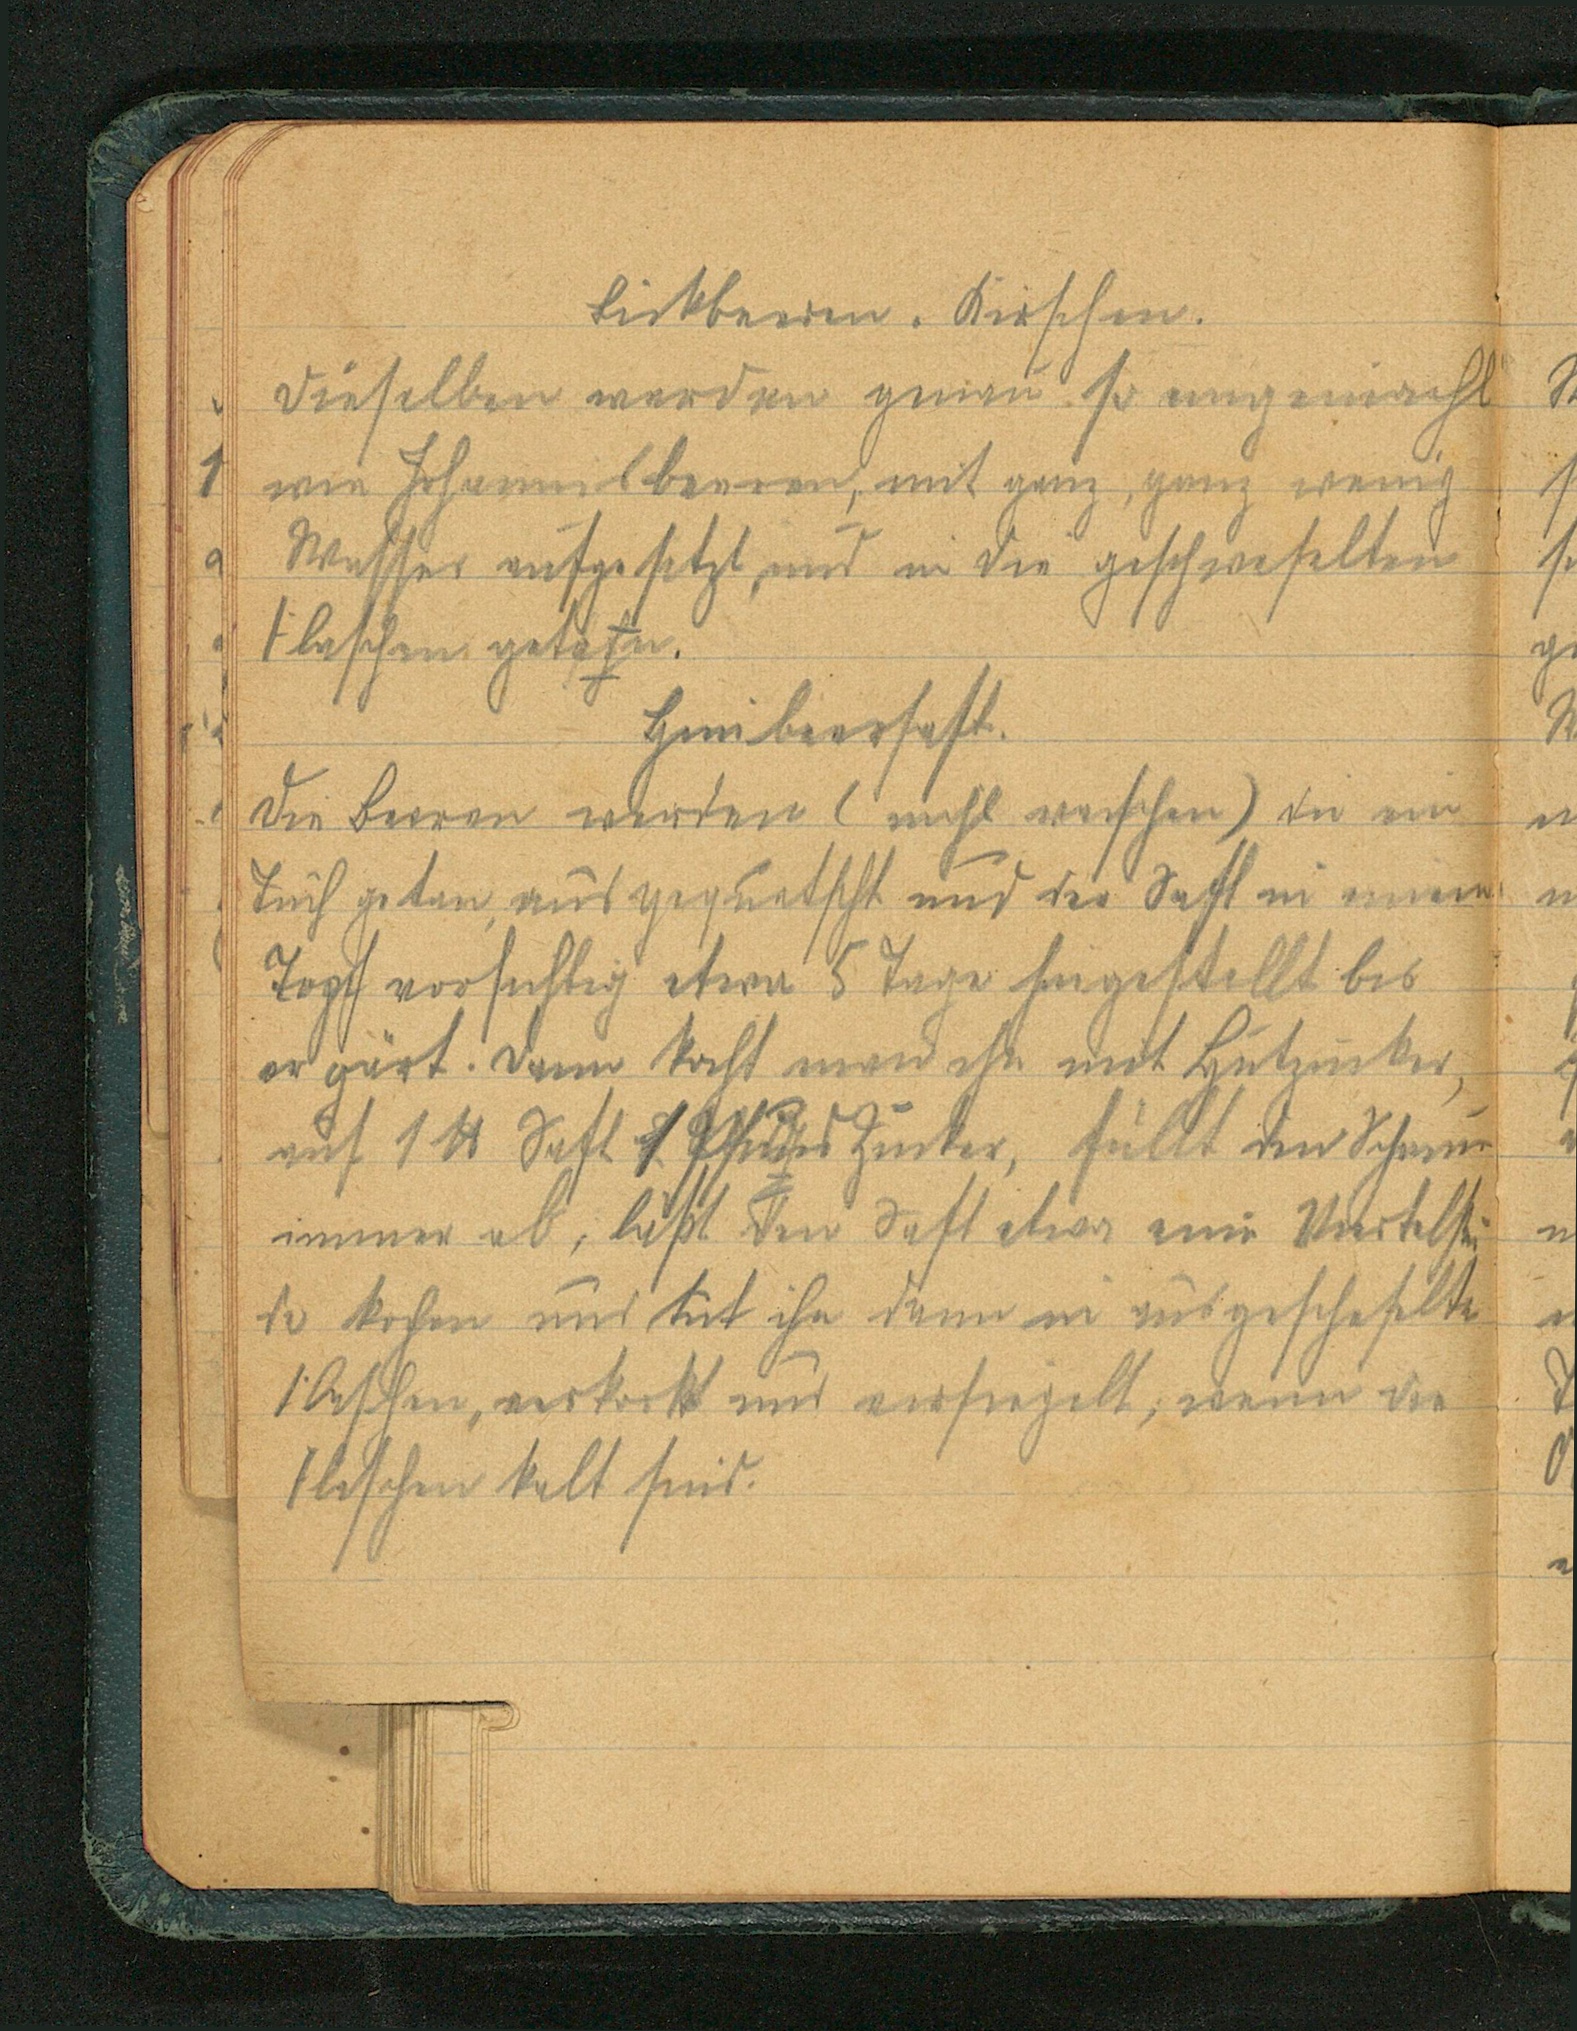 Bickbeeren. Kirschen.
Dieselben werden genau so eingemacht
wie Johannisbeeren, mit ganz, ganz wenig
Wasser aufgesetzt, und in die geschwefelten
Flaschen getahn.
Himbeersaft.
Die Beeren werden (nicht waschen) in ein
Tuch getan, ausgequetscht und der Saft in einem
Topf vorsichtig etwa 5 Tage hingestellt bis
er gärt. Dann kocht man ihn mit Hutzucker,
auf 1 ℔ Saft 1 Pfund Zucker, füllt den Schaum
immer ab, läßt den Saft etwa eine Viertelstun
de kochen und tut ihn dann in ausgeschefelte
Flaschen, verkorkt und versiegelt, wenn die
Flaschen kalt sind.